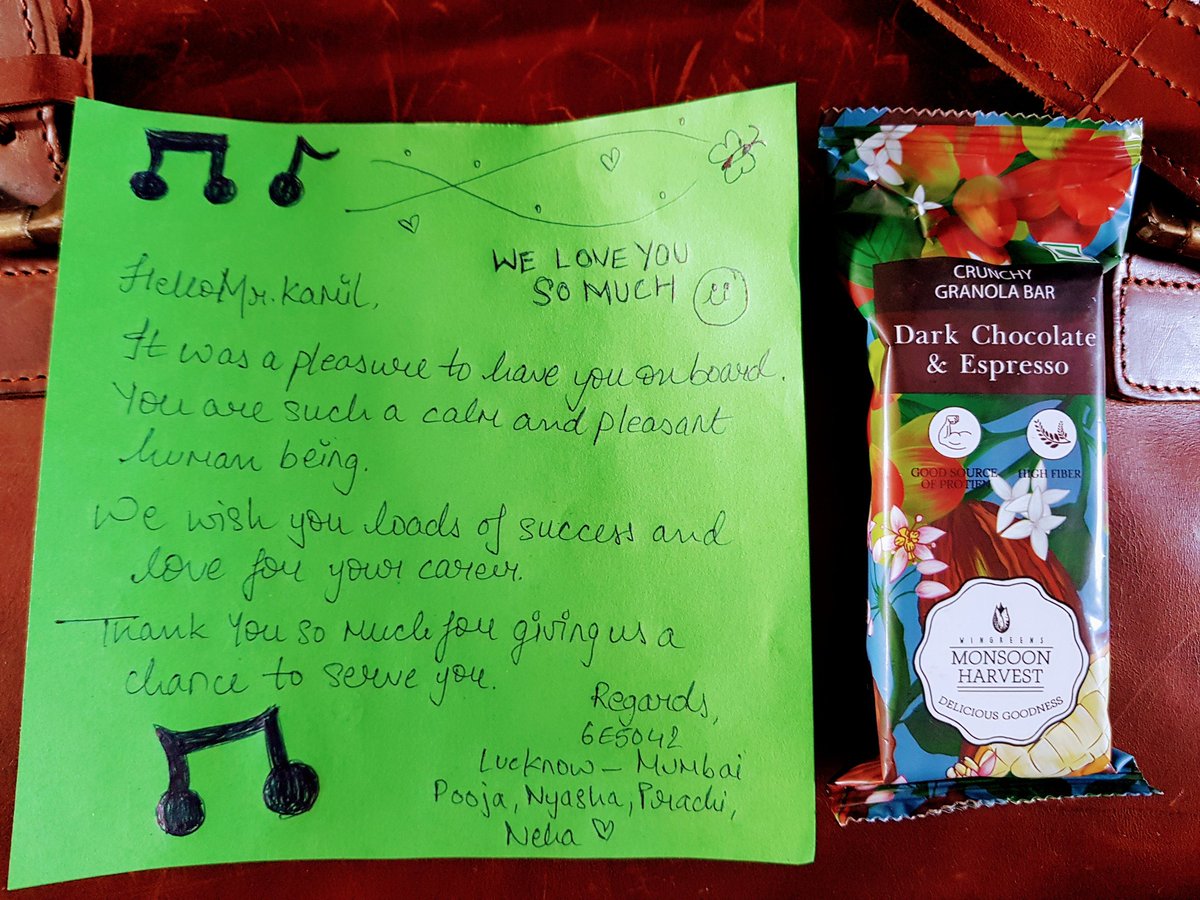 WE LOVE YOU
SO MUCH
Hello Mr. Kamil,
It was a pleasure to have you onboard.
You are such a calm and pleasant
human being.
We wish you loads of success and
love for your career.
Thank You so much for giving us a
chance to serve you.
Regards,
6E5042
Lucknow - Mumbai
Pooja, Nyasha, Prachi,
Neha
CRUNCHY
GRANOLA BAR
Dark Chocolate
& Espresso
GOOD SOURCE
OF PROTIEN
HIGH FIBER
WINGREENS
MONSOON
HARVEST
DELICIOUS GOODNESS